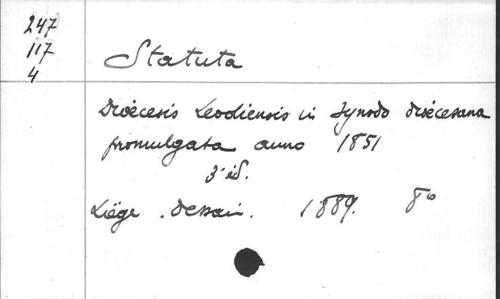 247
117
4
Statuta
Diœcesis Leodiensis in Synodo diœcesana
promulgata anno 1851
3e éd.
Liége. Dessain. 1889. 8o